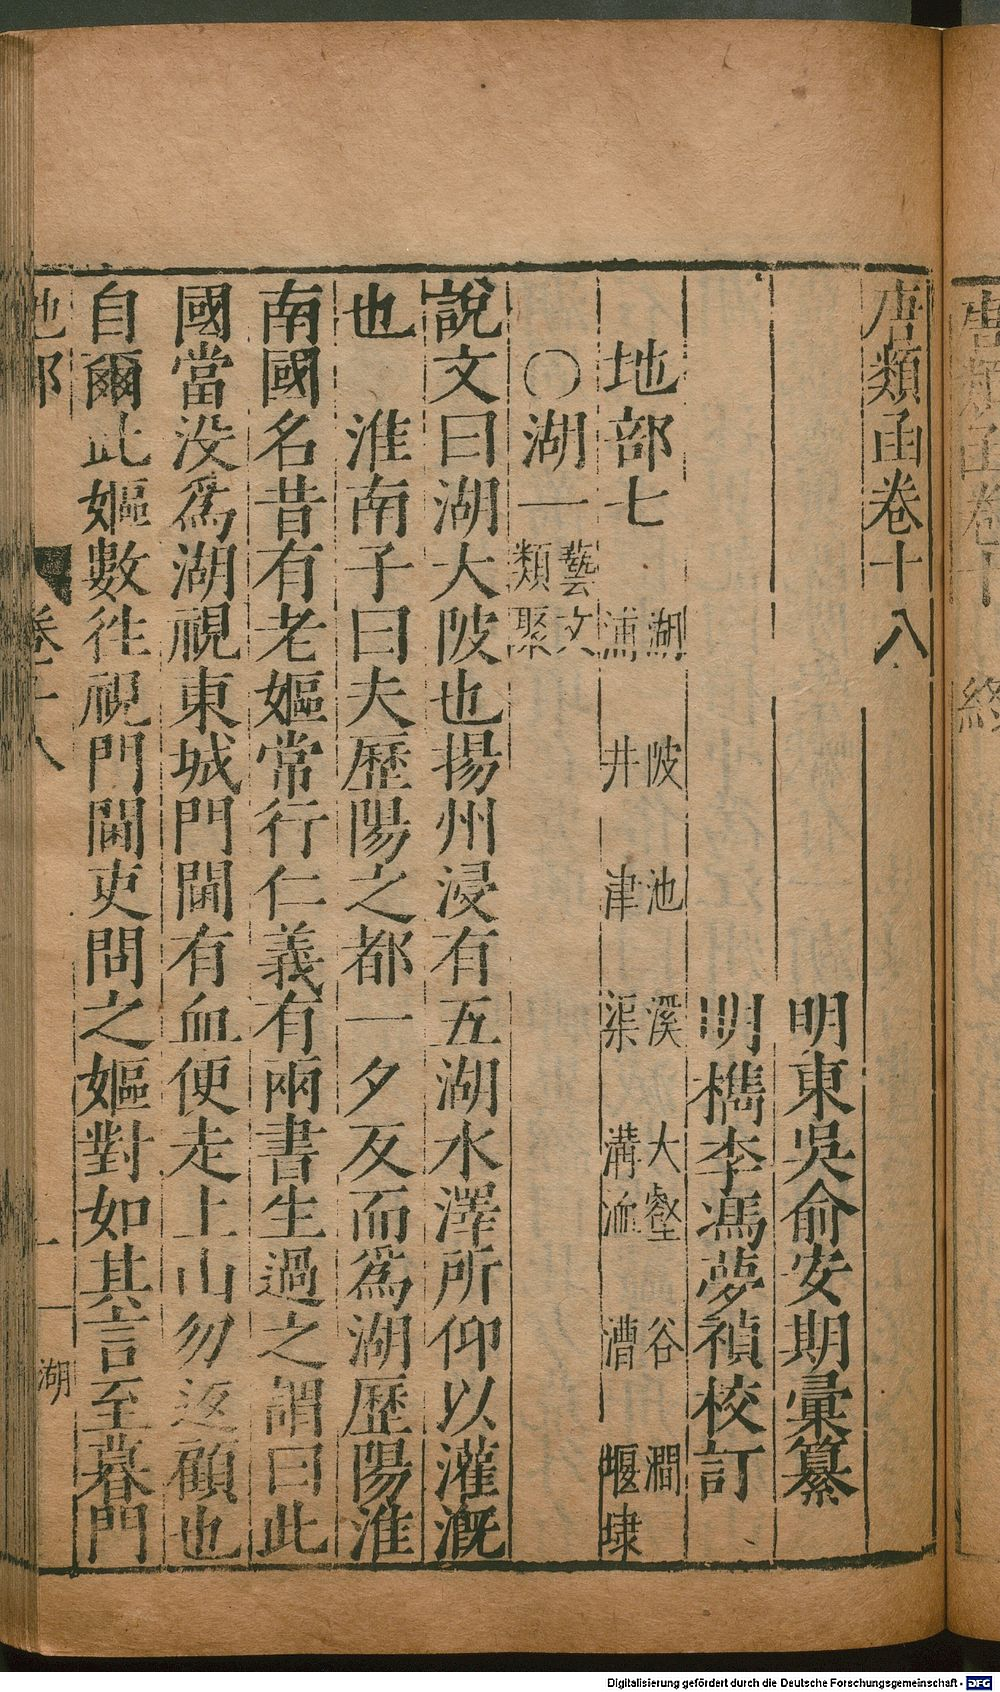 唐類函卷十八
明東吳俞安期彙纂
明檇李馮夢禎校訂
地部七 湖 陂 池 溪 大壑 谷 澗
浦 井 津 渠 溝洫 漕 堰埭
○湖一 藝文
類聚
說文曰湖大陂也揚州浸有五湖水澤所仰以灌漑
也 淮南子曰夫歷陽之都一夕反而爲湖歷陽淮
南國名昔有老嫗常行仁義有兩書生過之謂曰此
國當没爲湖視東城門閫有血便走上山勿返顧也
自爾此嫗數徃視門閫吏問之嫗對如其言至暮門
地部
卷十八
一
湖
唐類函卷十
終
Digitalisierung gefördert durch die Deutsche Forschungsgemeinschaft - DFG